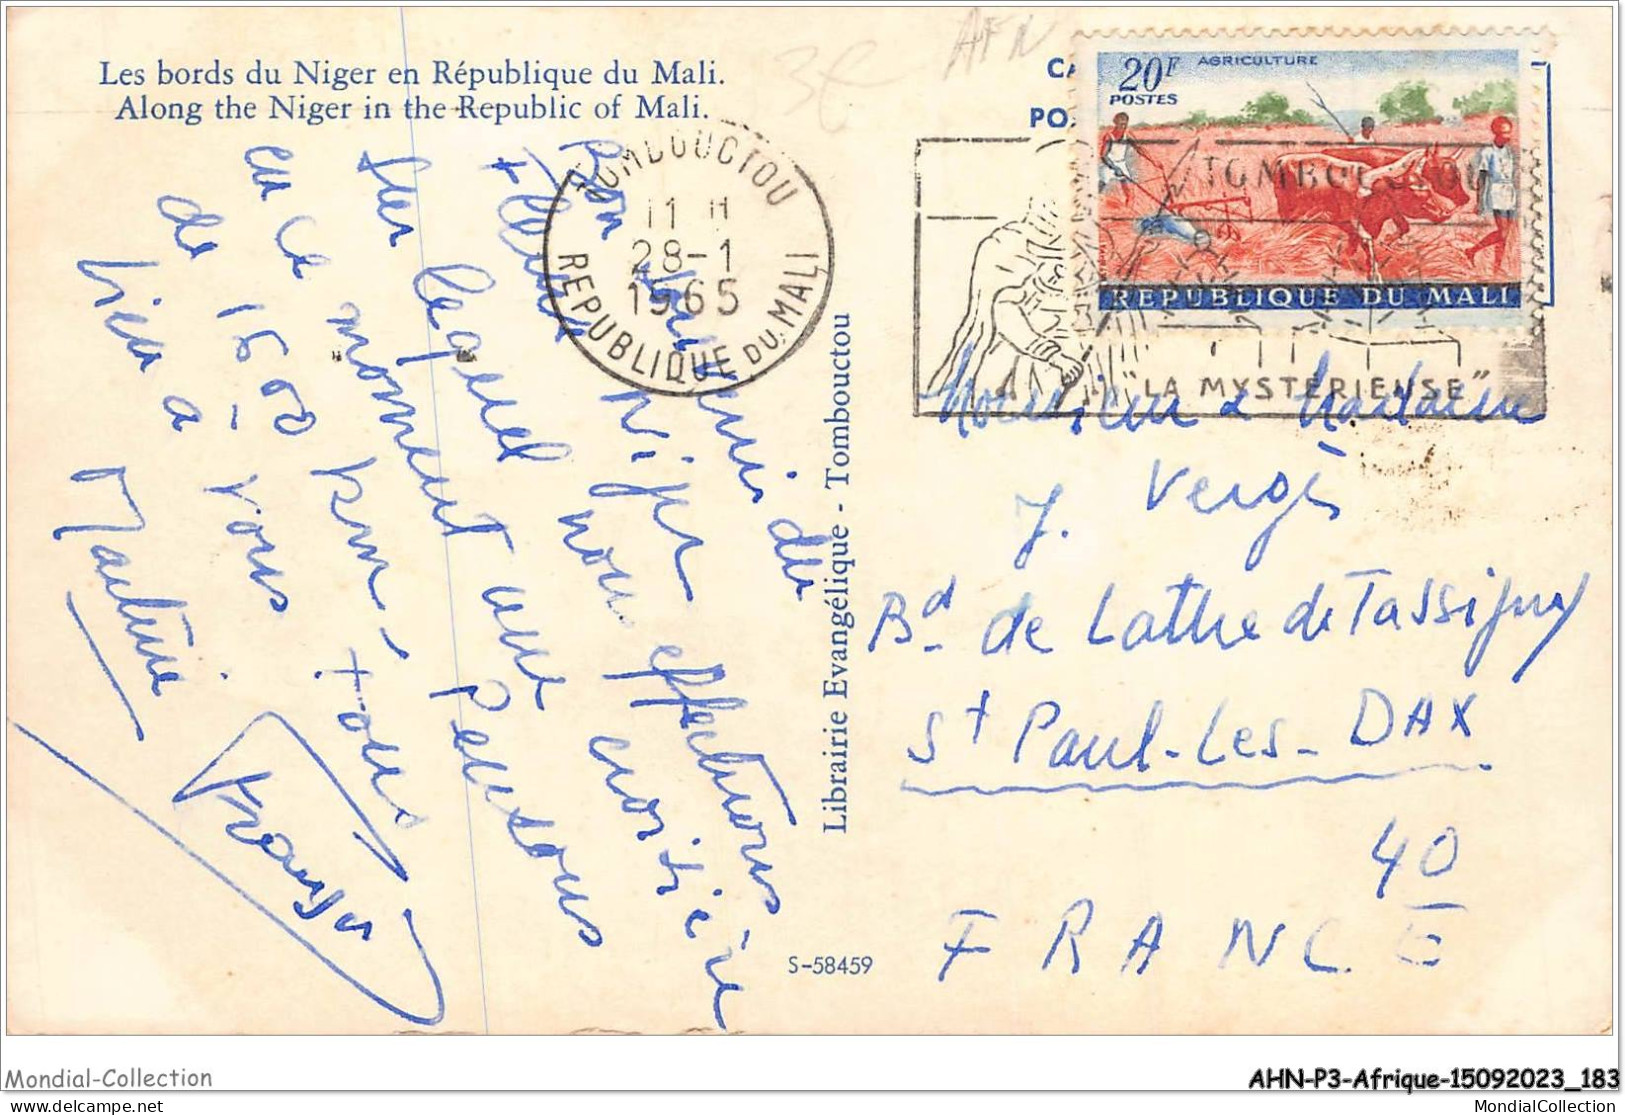 Les bords du Niger en République du Mali.
Along the Niger in the Republic of Mali.
AFN
3€
CA
PO
20F
AGRICULTURE
POSTES
REPUBLIQUE DU MALI
TOMBOUCTOU
11 H
28-1
1965
REPUBLIQUE DU MALI
TOMBOUCTOU
"LA MYSTERIEUSE"
Bon souvenir du
fleuve Niger
sur lequel nous effectuons
en ce moment une croisière
de 1600 km - nous pensons
bien à vous tous
Martine
Librairie Evangélique - Tombouctou
S-58459
Monsieur & Madame
J. Vergés
Bd de Lattre de Tassigny
St Paul-Les-DAX
40
FRANCE
Mondial-Collection
AHN-P3-Afrique-15092023_183
delcampe.net
MondialCollection